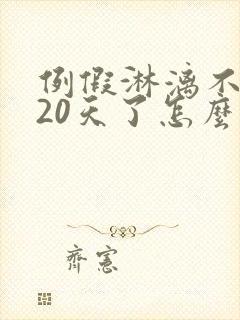 例假淋漓不
20天了怎麽
齊憲